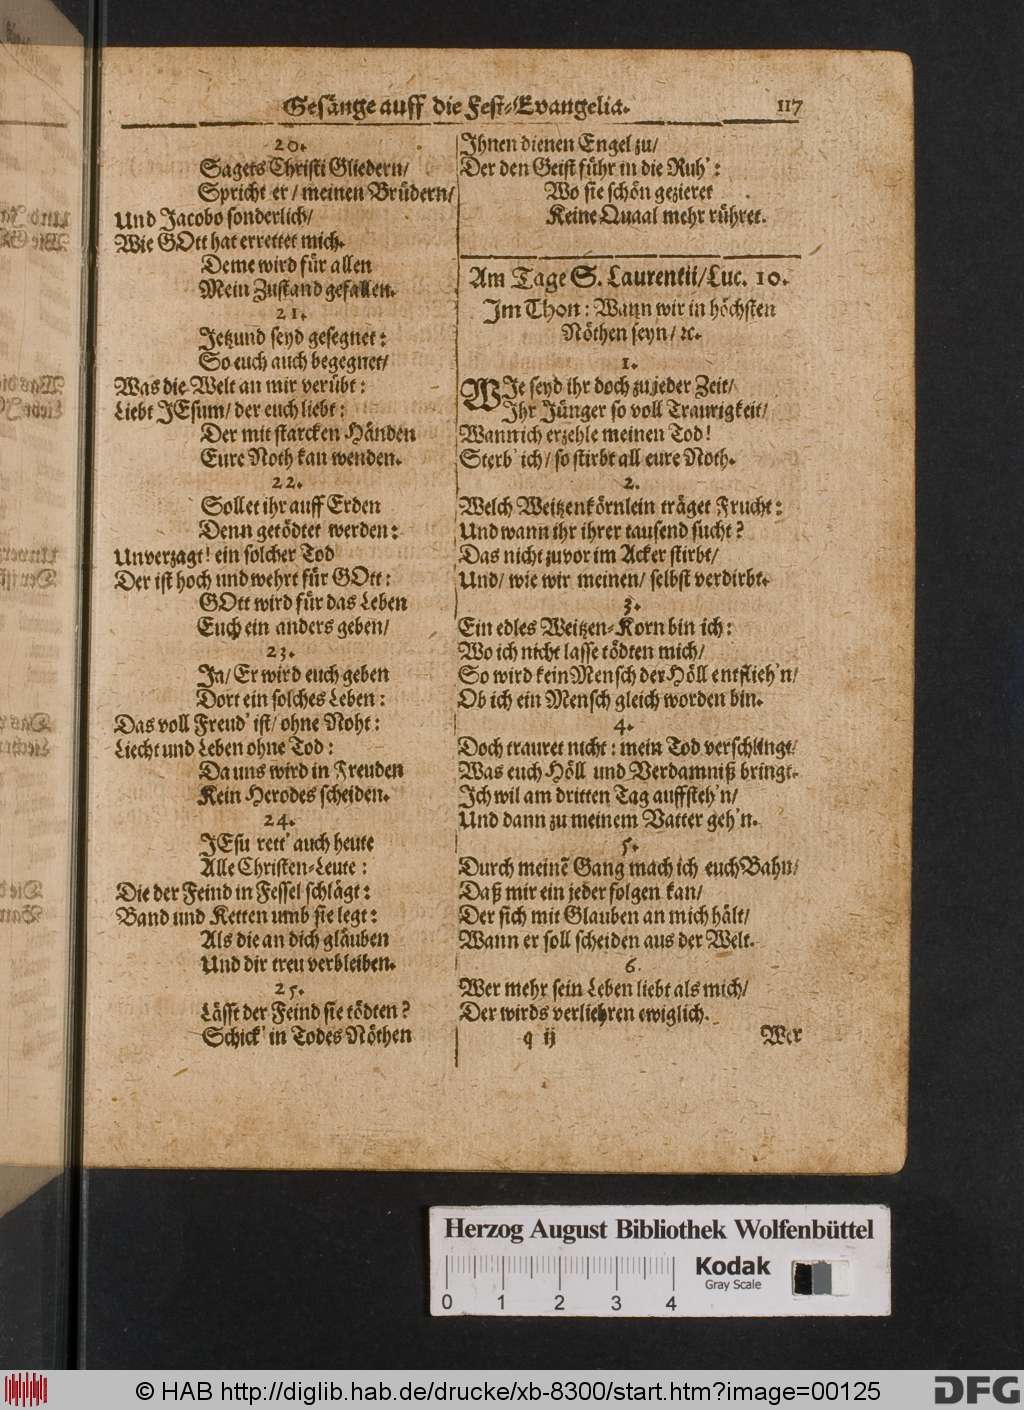 Gesänge auff die Fest-Evangelia. 117
20.
Sagets Christi Gliedern/
Spricht er/ meinen Brüdern/
Und Jacobo sonderlich/
Wie GOtt hat errettet mich.
Deme wird für allen
Mein Zustand gefallen.
21.
Jetzund seyd gesegnet:
So euch auch begegnet/
Was die Welt an mir verübt:
Liebt JEsum/ der euch liebt:
Der mit starcken Händen
Eure Noth kan wenden.
22.
Sollet ihr auff Erden
Denn getödtet werden:
Unverzagt! ein solcher Tod
Der ist hoch und wehrt für GOtt:
GOtt wird für das Leben
Euch ein anders geben/
23.
Ja/ Er wird euch geben
Dort ein solches Leben:
Das voll Freud' ist/ ohne Noht:
Liecht und Leben ohne Tod:
Da uns wird in Freuden
Kein Herodes scheiden.
24.
JEsu rett' auch heute
Alle Christen-Leute:
Die der Feind in Fessel schlägt:
Band und Ketten umb sie legt:
Als die an dich gläuben
Und dir treu verbleiben.
25.
Lässt der Feind sie tödten?
Schick' in Todes Nöthen
Ihnen dienen Engel zu/
Der den Geist führ in die Ruh':
Wo sie schön gezieret
Keine Quaal mehr rühret.
Am Tage S. Laurentii/ Luc. 10.
Im Thon: Wann wir in höchsten
Nöthen seyn/ ꝛc.
1.
WJe seyd ihr doch zu jeder Zeit/
Ihr Jünger so voll Traurigkeit/
Wann ich erzehle meinen Tod!
Sterb' ich/ so stirbt all eure Noth.
2.
Welch Weitzenkörnlein träget Frucht:
Und wann ihr ihrer tausend sucht?
Das nicht zuvor im Acker stirbt/
Und/ wie wir meinen/ selbst verdirbt.
3.
Ein edles Weitzen-Korn bin ich:
Wo ich nicht lasse tödten mich/
So wird kein Mensch der Höll entflieh'n/
Ob ich ein Mensch gleich worden bin.
4.
Doch trauret nicht: mein Tod verschlingt/
Was euch Höll und Verdamniß bringt.
Ich wil am dritten Tag auffsteh'n/
Und dann zu meinem Vatter geh'n.
5.
Durch meinẽ Gang mach ich euch Bahn/
Daß mir ein jeder folgen kan/
Der sich mit Glauben an mich hält/
Wann er soll scheiden aus der Welt.
6.
Wer mehr sein Leben liebt als mich/
Der wirds verliehren ewiglich.
q ij Wer
Herzog August Bibliothek Wolfenbüttel
Kodak
Gray Scale
0 1 2 3 4
© HAB http://diglib.hab.de/drucke/xb-8300/start.htm?image=00125
DFG